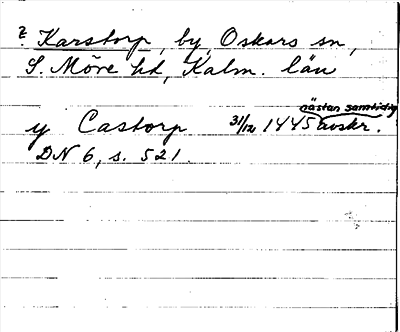 ? Karstorp, by, Oskars sn,
S. Möre hd, Kalm. län
nästan samtidig
y Castorp 31/12 1445 avskr.
DN 6, s. 521.